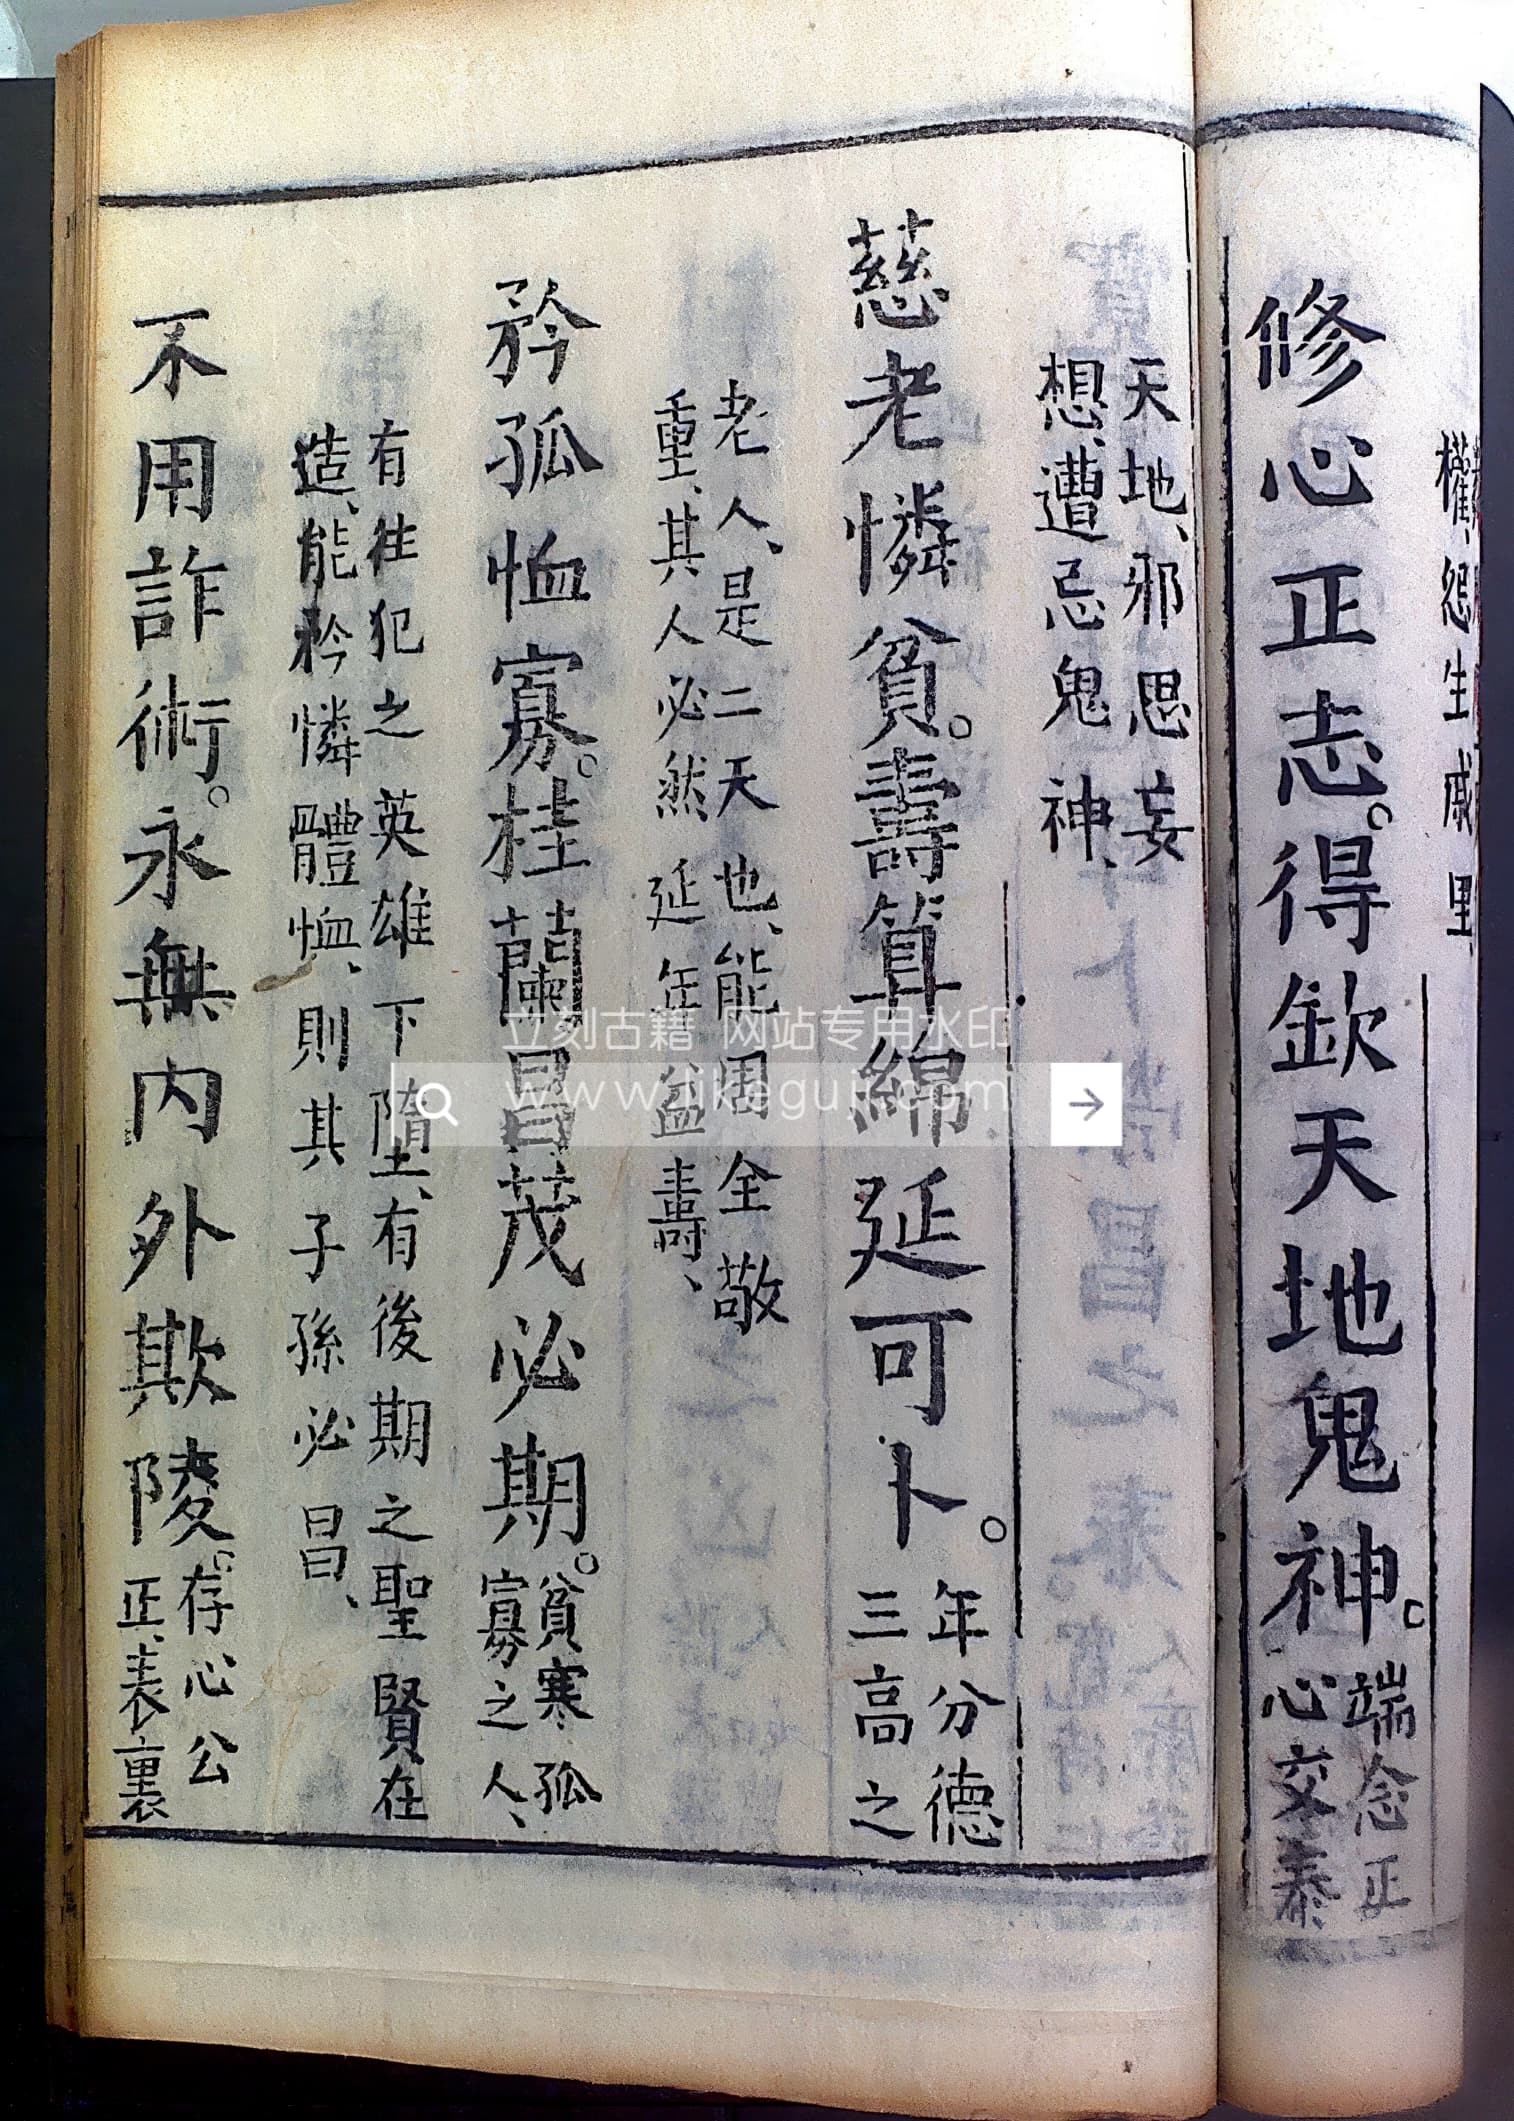 權、怨生戚里、
修心正志。得欽天地鬼神。
端念正
心交泰
天地、邪思妄
想、遭忌鬼神、
慈老憐貧。壽算綿延可卜。
年分德
三高之
老人、是二天也、能周全敬
重、其人必然延年益壽、
矜孤恤寡。桂蘭昌茂必期。
貧寒孤
寡之人、
有往犯之英雄下墮、有後期之聖賢在
造、能矜憐體恤、則其子孫必昌、
不用詐術。永無內外欺陵。
存心公
正、表裏
立刻古籍 网站专用水印
www.likeguji.com